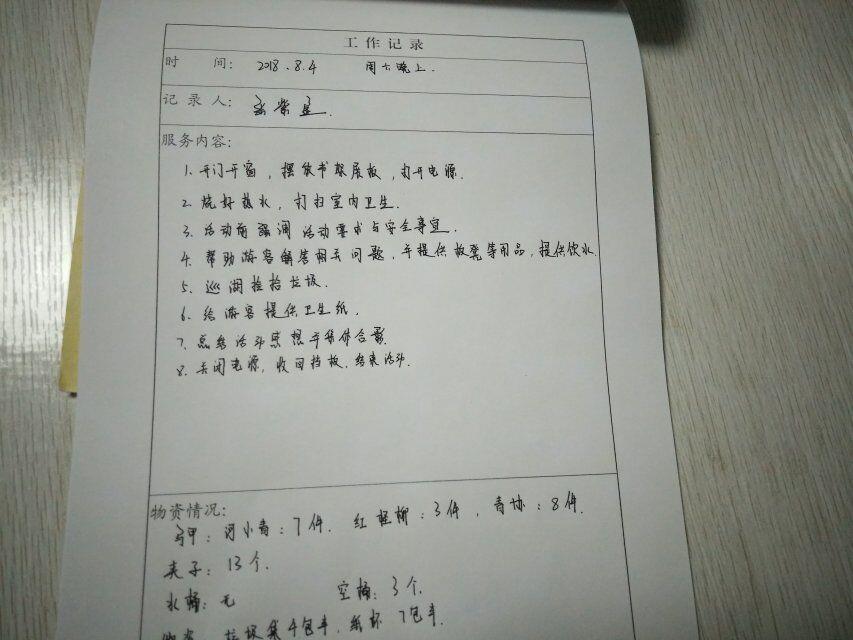 工作记录
时 间: 2018.8.4 周六晚上.
记录人:
服务内容:
1. 开门开窗, 摆放书架展板, 打开电源.
2. 烧好热水, 打扫室内卫生.
3. 活动前强调活动要求与安全事宜.
4. 帮助游客解答相关问题, 并提供板凳等用品, 提供饮水.
5. 巡湖捡拾垃圾.
6. 给游客提供卫生纸.
7. 总结活动感想并集体合影.
8. 关闭电源, 收回挡板, 结束活动.
物资情况:
马甲: 河小青: 7件. 红柽柳: 3件, 青协: 8件.
夹子: 13个.
水桶: 无 空桶: 3个.
垃圾袋4包半, 纸杯7包半.